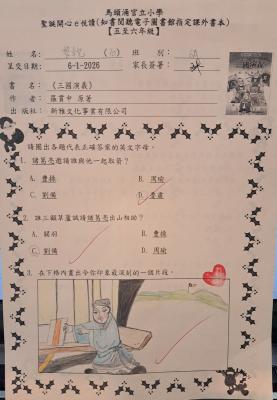 馬頭涌官立小學
聖誕開心e悅讀(如書閱聽電子圖書館指定課外書本)
【五至六年級】
姓名：
班別：
呈交日期：6-1-2026
家長簽署：
書名：《三國演義》
作者：羅貫中 原著
出版社：新雅文化事業有限公司
請圈出各題代表正確答案的英文字母。
1. 諸葛亮邀請誰與他一起取箭？
A. 曹操 B. 周瑜
C. 劉備 D. 魯肅
2. 誰三顧草廬誠請諸葛亮出山相助？
A. 關羽 B. 曹操
C. 劉備 D. 周瑜
3. 在下格內畫出令你印象最深刻的一個片段。